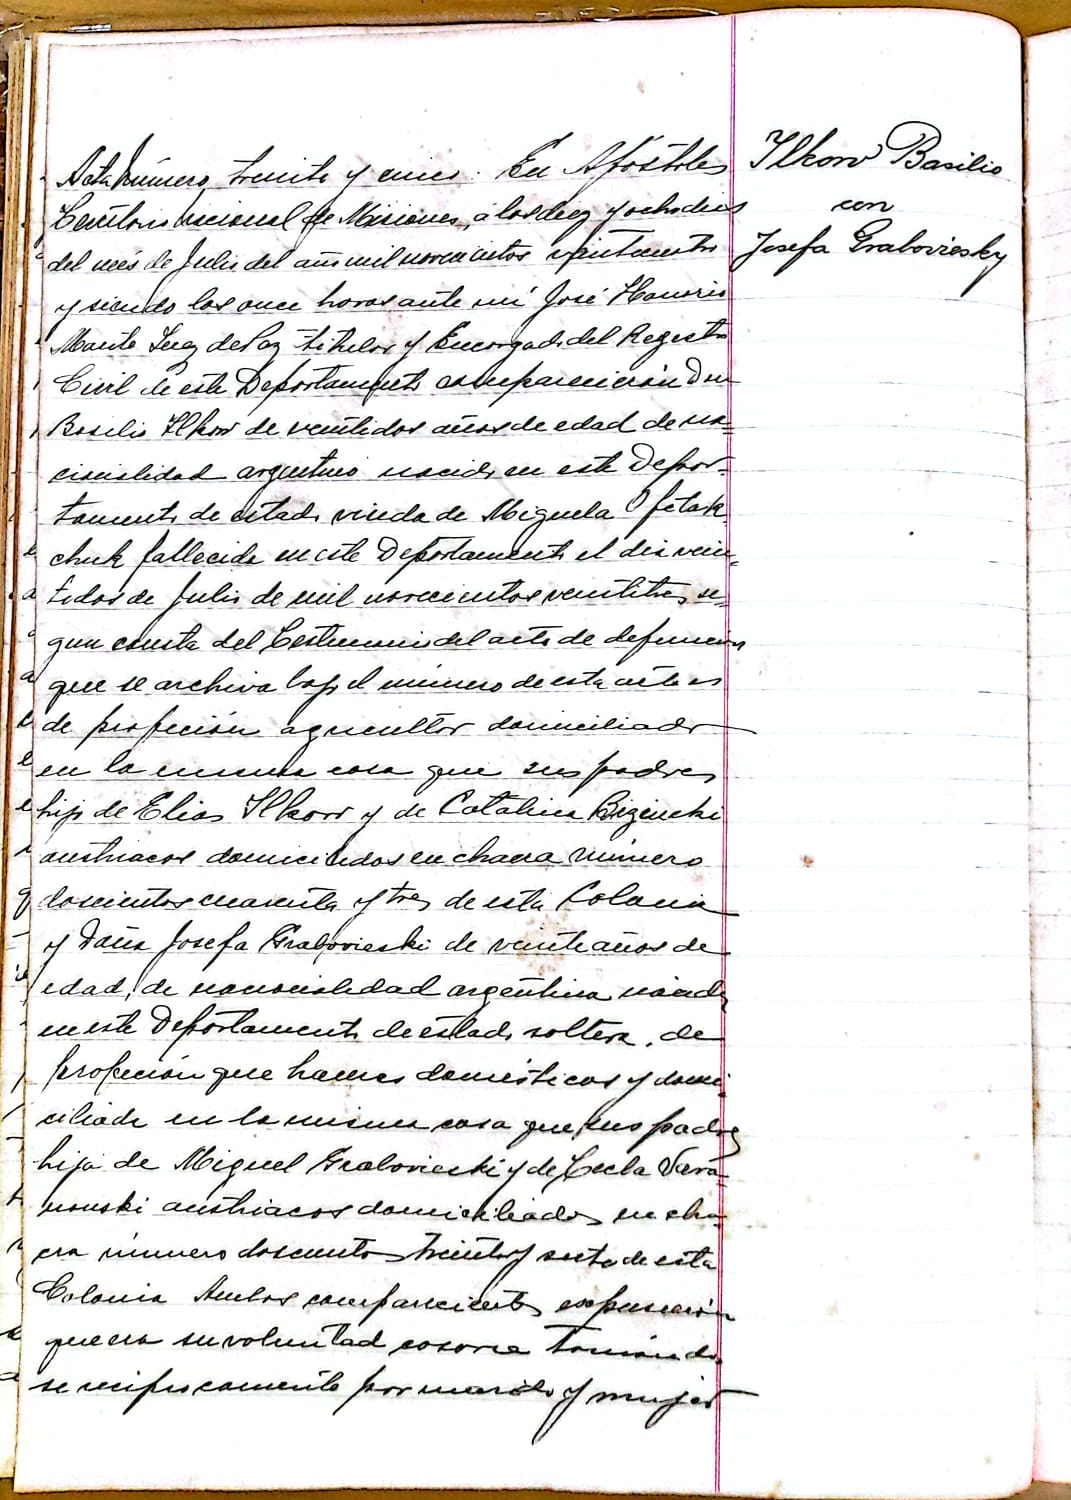 Ilkow Basilio
con
Josefa Graboviesky
Acta Número treinta y cinco. En Apóstoles
Territorio nacional de Misiones, á los diez y ocho dias
del més de Julio del año mil novecientos veinticuatro
y siendo las once horas ante mi José Honorio
Juez de Paz titular y Encargado del Registro
Civil de este Departamento comparecieron Don
Basilio Ilkow de veintidos años de edad de na-
cionalidad argentino nacido en este Depar-
tamento de estado viudo de Miguela Ofetak
chuk fallecida en este Departamento el dia vein-
tidos de Julio de mil novecientos veintitres se-
gun consta del Testimonio del acta de defuncion
que se archiva bajo el número de esta acta es
de profeción agricultor domiciliado
en la misma casa que sus padres
hijo de Elias Ilkow y de Catalina Bizinski
austriacos domiciliados en chacra número
doscientos cuarenta y tres de esta Colonia
y Doña Josefa Grabovieski de veinte años de
edad, de nacionalidad argentina nacida
en este Departamento de estado soltera, de
profeción quehaceres domésticos y domi-
ciliada en la misma casa que sus padres
hija de Miguel Grabovieski y de Tecla Vara-
nouski austriacos domiciliados en cha-
cra número doscientos treinta y seis de esta
Colonia Ambos comparecientes expusieron
que era su voluntad casarse tomando-
se reciprocamente por marido y mujer